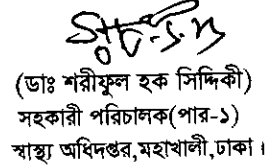 (ডাঃ শরীফুল হক সিদ্দিকী)
সহকারী পরিচালক(পার-১)
স্বাস্থ্য অধিদপ্তর,মহাখালী,ঢাকা।